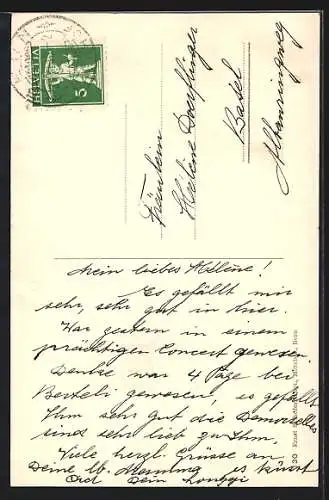 HELVETIA
5
Fräulein
Helene Doerflinger
Basel
Albanringweg
Mein liebes Hélène!
Es gefällt mir
sehr, sehr gut in hier.
War gestern in einem
prächtigen Concert gewesen.
Denke war 4 Tage bei
Berteli gewesen, es gefällt
Ihm sehr gut die Demoiselles
sind sehr lieb zu Ihm.
Viele herzl. Grüsse an
Deine lb. es küsst
Dich Dein